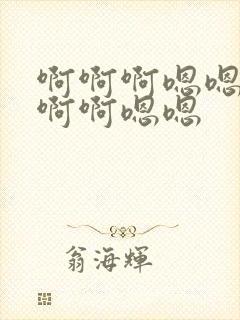 啊啊啊嗯嗯
啊啊嗯嗯
翁海輝